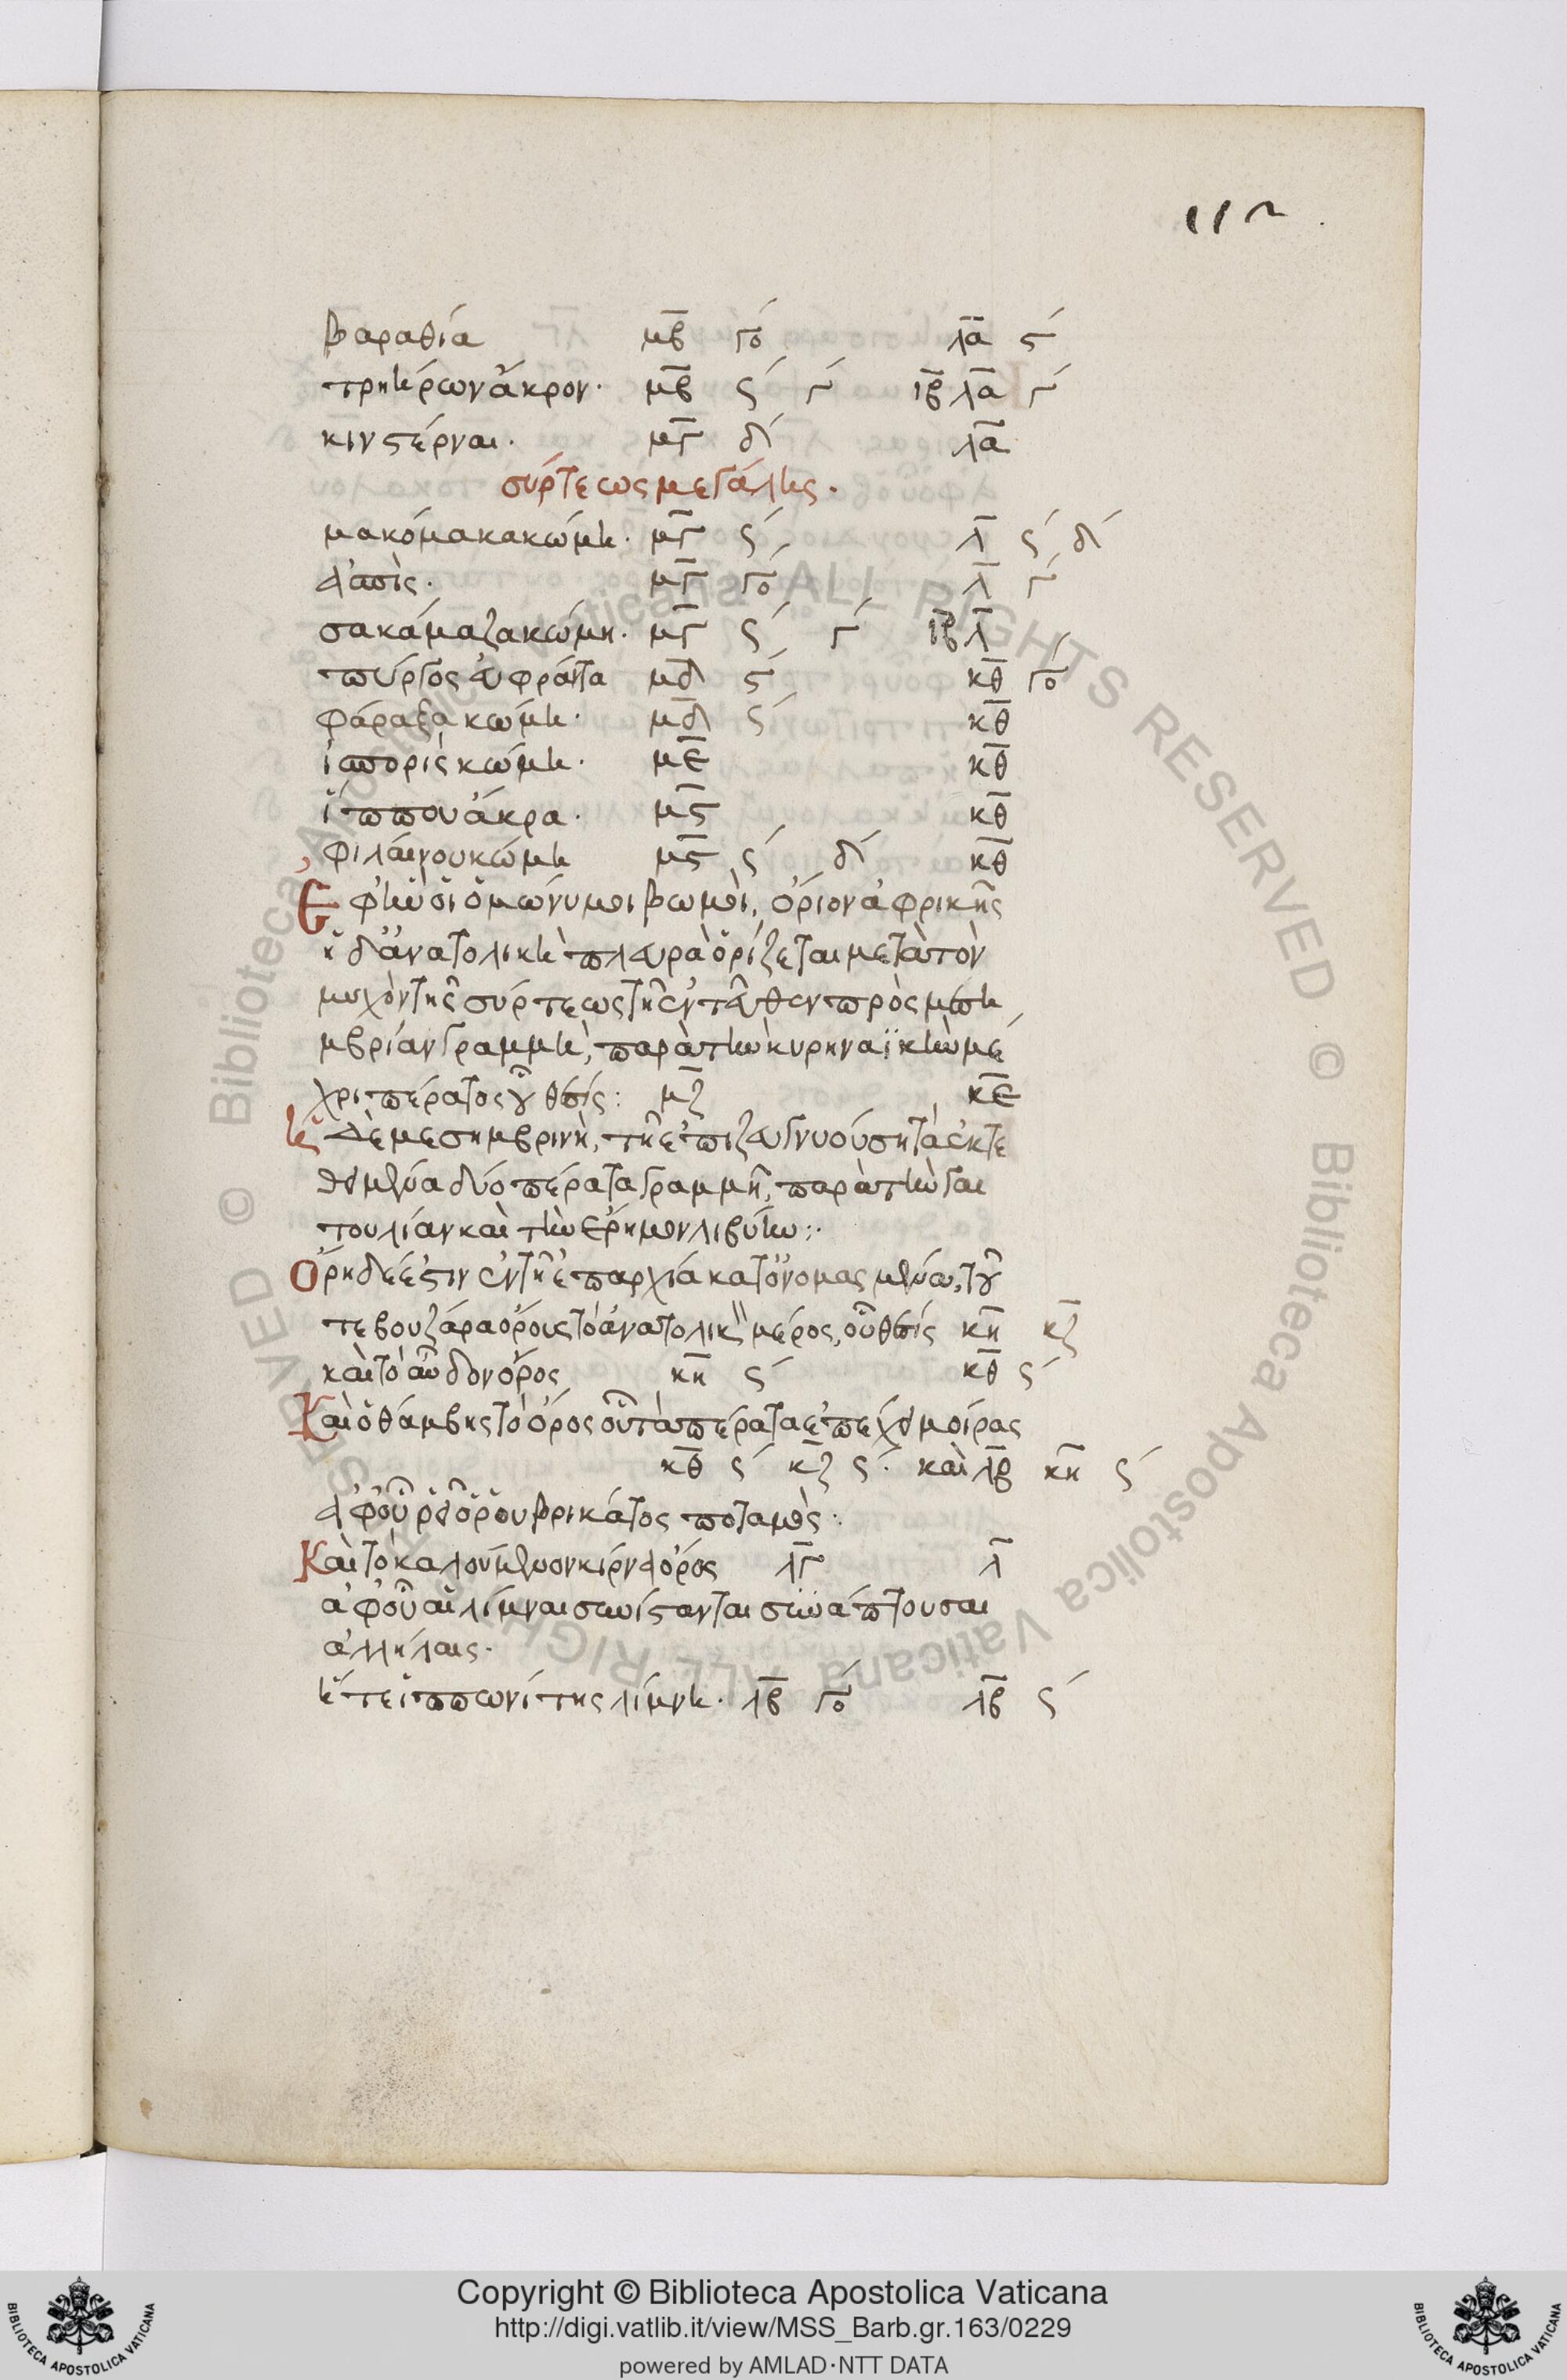 112
βαραθία μβ γο λα ϛ
τριήρων ἄκρον· μβ ς γ ιβ λα γ
κινστέρναι· μγ δ λα
σύρτεως μεγάλης·
μακόμακα κώμη· μγ ς λ ς δ
ἀσπὶς· μγ γο λ γ
σακάμαζα κώμη· μγ ς γ ιβ λ
πύργος εὐφράντα μδ ϛ κθ γο
φάραξα κώμη· μδ ς κθ
ἰσπορὶς κώμη· με κθ
ἵππου ἄκρα· μϛ κθ
φιλαίνου κώμη μϛ ς δ κθ
Ἐφ' ἣν οἱ ὁμώνυμοι βωμοὶ, ὅριον ἀφρικῆς
ἡ δ' ἀνατολικὴ πλευρὰ ὁρίζεται μετὰ τὸν
μυχὸν τῆς σύρτεως τῇ ἐντεῦθεν πρὸς μεση
μβρίαν γραμμῇ, παρὰ τὴν κυρηναϊκὴν μέ
χρι πέρατος οὗ θέσις: μζ κε
ἡ δὲ μεσημβρινὴ, τῇ ἐπιζευγνυούσῃ τὰ ἐκτε
θειμένα δύο πέρατα γραμμῇ, παρὰ τὴν γαι
τουλίαν καὶ τὴν ἔρημον λιβύην:·
Ὄρη δέ ἐστιν ἐν τῇ ἐπαρχίᾳ κατονομασμένα, τοῦ
τε βουζάρα ὄρους τὸ ἀνατολικὸν μέρος, οὗ θέσις κη κζ
καὶ τὸ αὖδον ὄρος κη ς κθ ς
Καὶ ὁ θάμβης τὸ ὄρος οὗ τὰ πέρατα ἐπέχει μοίρας
κθ ς κζ ς· καὶ λβ κη ς
ἀφ' οὗ ῥεῖ ὁ ῥουβρικάτος ποταμός·
Καὶ τὸ καλούμενον κίρνα ὄρος λγ λ
ἀφ' οὗ αἱ λίμναι συνίστανται συνάπτουσαι
ἀλλήλαις·
ἥ τε ἱππωνίτης λίμνη· λβ γο λβ ς
Copyright © Biblioteca Apostolica Vaticana
http://digi.vatlib.it/view/MSS_Barb.gr.163/0229
powered by AMLAD·NTT DATA